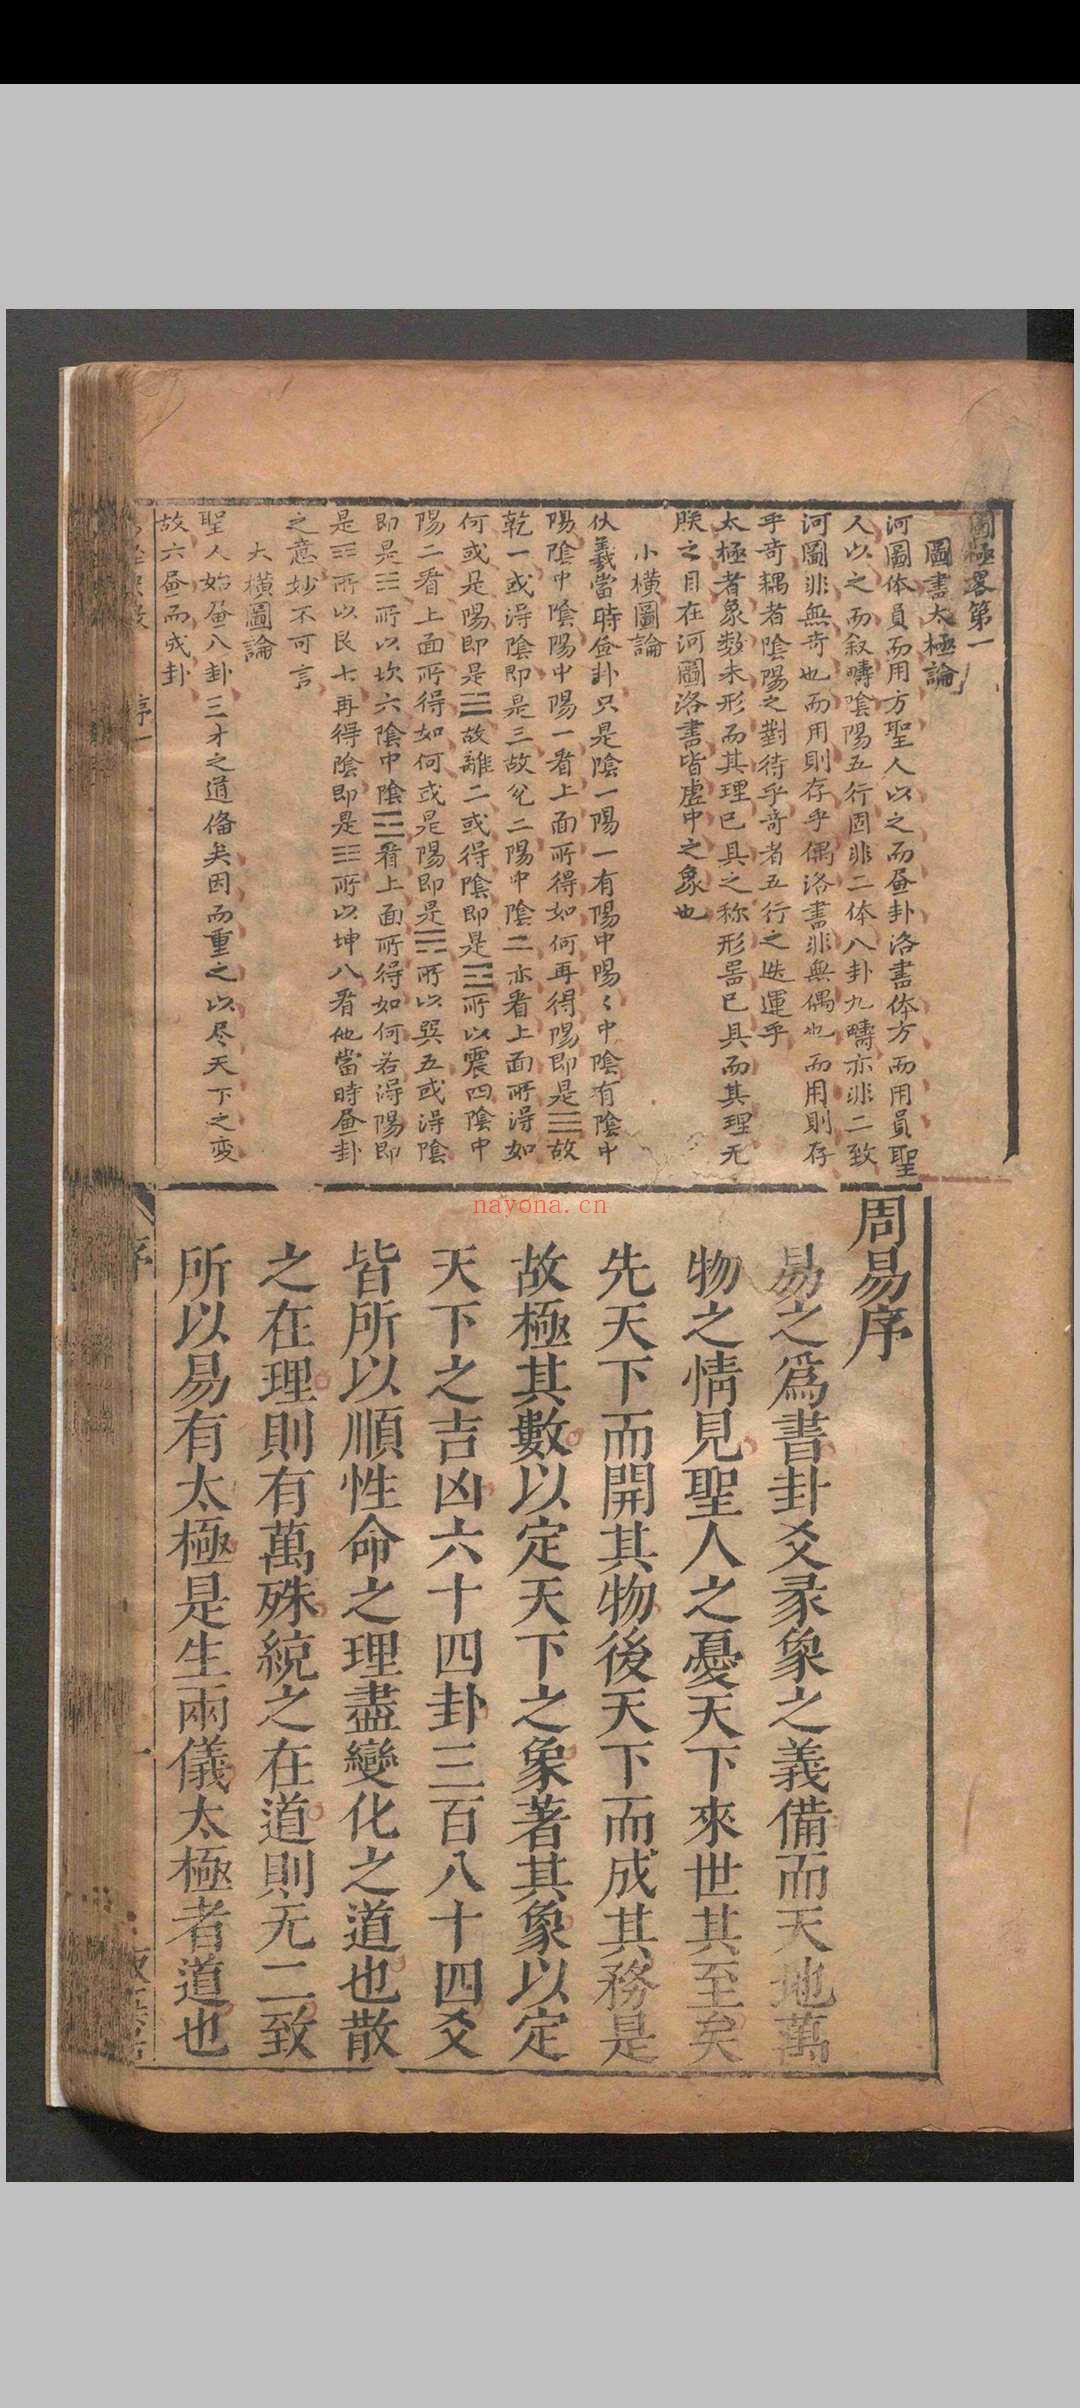 圖極畧第一
圖書太極論
河圖体員而用方聖人以之而畫卦洛書体方而用員聖
人以之而叙疇陰陽五行固非二体八卦九疇亦非二致
河圖非無奇也而用則存乎偶洛書非無偶也而用則存
乎奇耦者陰陽之對待乎奇者五行之迭運乎
太極者象数未形而其理已具之称形器已具而其理无
朕之目在河圖洛書皆虛中之象也
小橫圖論
伏羲當時畫卦只是陰一陽一有陽中陽〻中陰有陰中
陽陰中陰陽中陽一看上面所得如何再得陽即是☰故
乾一或得陰即是三故兌二陽中陰二亦看上面所得如
何或是陽即是☲故離二或得陰即是☳所以震四陰中
陽二看上面所得如何或是陽即是☴所以巽五或得陰
即是☵所以坎六陰中陰☷看上面所得如何若得陽即
是☶所以艮七再得陰即是☷所以坤八看他當時畫卦
之意妙不可言
大橫圖論
聖人始畫八卦三才之道俻矣因而重之以尽天下之変
故六畫而成卦
序一
周易序
易之爲書卦爻彖象之義備而天地萬
物之情見聖人之憂天下來世其至矣
先天下而開其物後天下而成其務是
故極其數以定天下之象著其象以定
天下之吉凶六十四卦三百八十四爻
皆所以順性命之理盡變化之道也散
之在理則有萬殊統之在道則无二致
所以易有太極是生兩儀太極者道也
序
一
nayona.cn